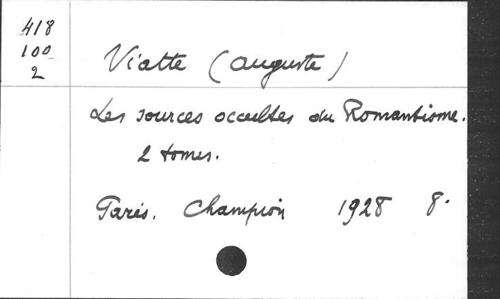 418
100
2
Viatte (Auguste)
Les sources occultes du Romantisme.
2 tomes.
Paris. Champion 1928 8.